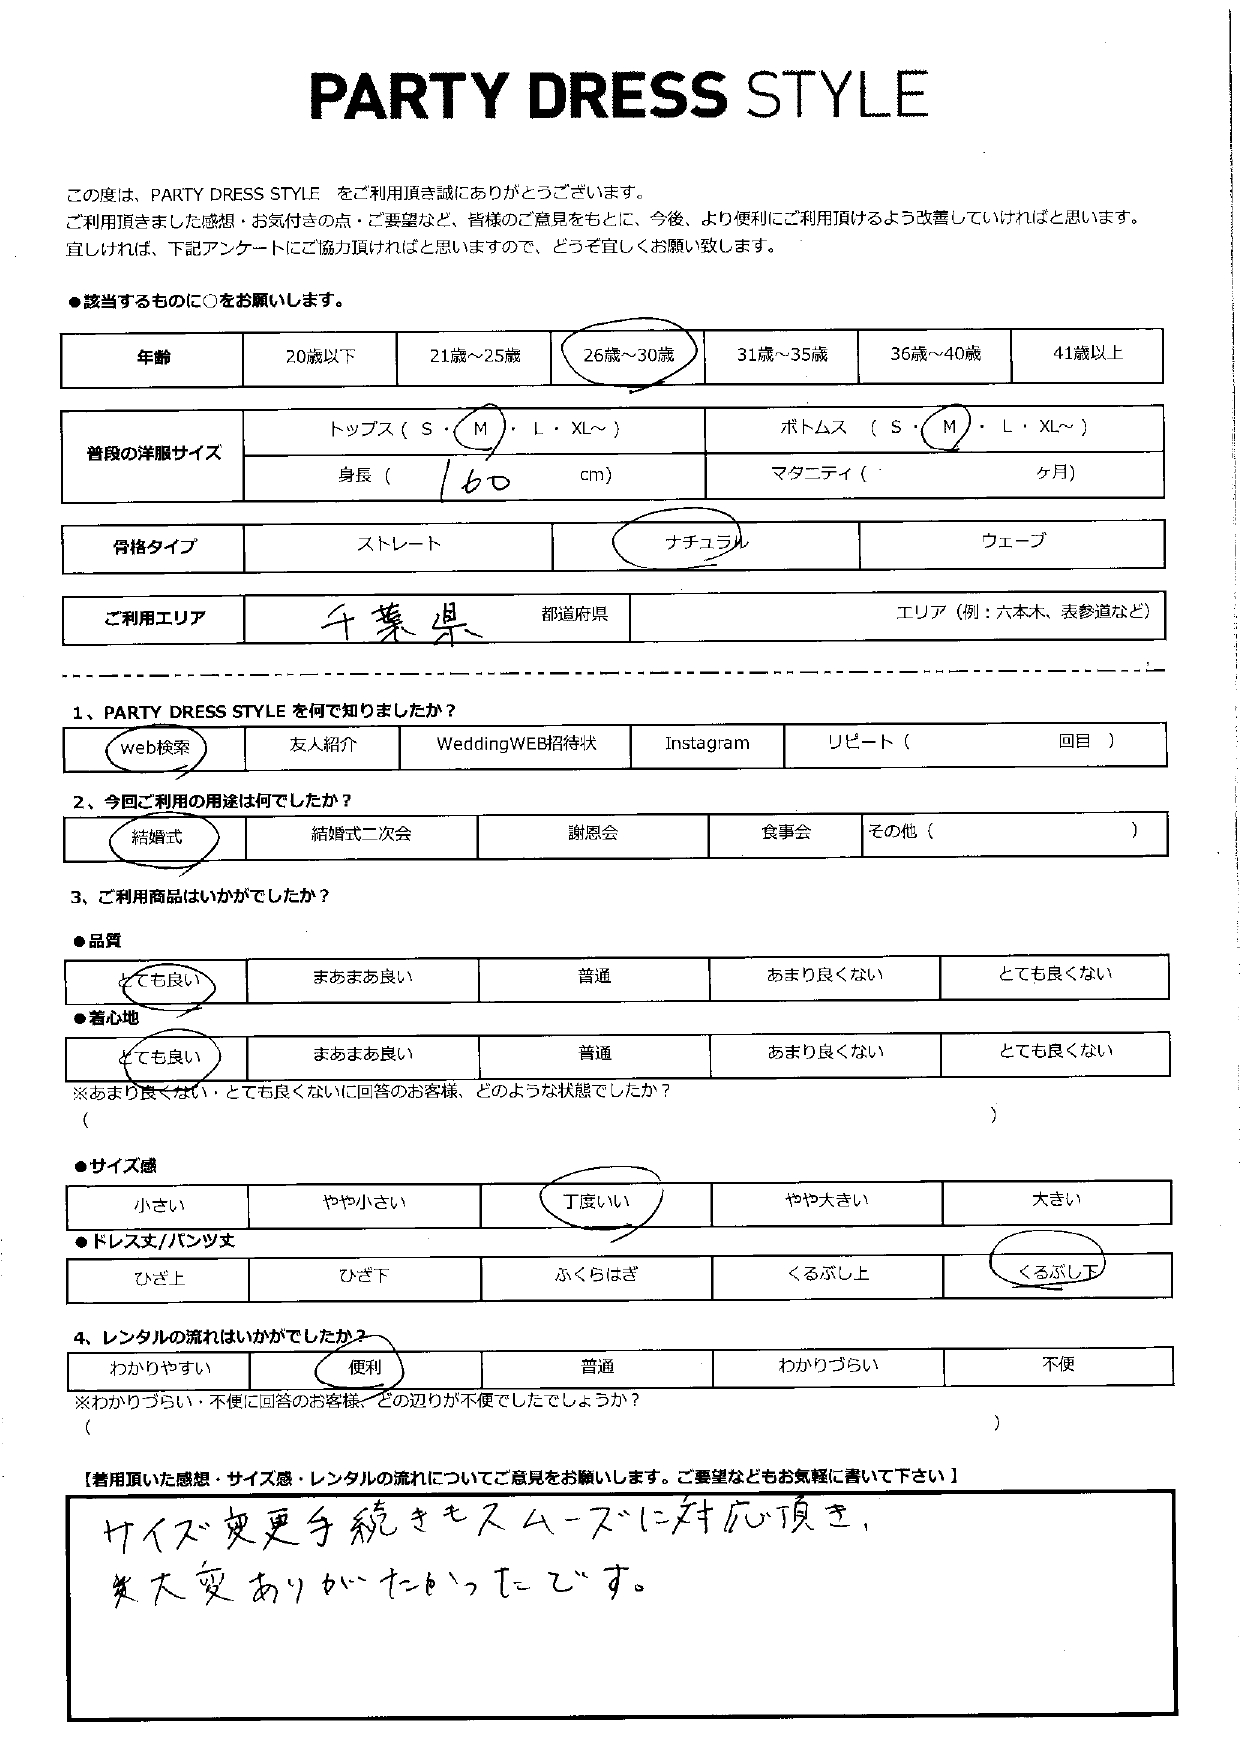 PARTY DRESS STYLE
この度は、PARTY DRESS STYLE をご利用頂き誠にありがとうございます。
ご利用頂きました感想・お気付きの点・ご要望など、皆様のご意見をもとに、今後、より便利にご利用頂けるよう改善していければと思います。
宜しければ、下記アンケートにご協力頂ければと思いますので、どうぞ宜しくお願い致します。
●該当するものに○をお願いします。
年齢 20歳以下 21歳～25歳 26歳～30歳 31歳～35歳 36歳～40歳 41歳以上
普段の洋服サイズ トップス ( S ・ M ・ L ・ XL～ ) ボトムス ( S ・ M ・ L ・ XL～ )
身長 ( 160 cm) マタニティ ( ヶ月)
骨格タイプ ストレート ナチュラル ウェーブ
ご利用エリア 千葉県 都道府県 エリア（例：六本木、表参道など）
1、PARTY DRESS STYLE を何で知りましたか？
web検索 友人紹介 WeddingWEB招待状 Instagram リピート ( 回目 )
2、今回ご利用の用途は何でしたか？
結婚式 結婚式二次会 謝恩会 食事会 その他 ( )
3、ご利用商品はいかがでしたか？
●品質
とても良い まあまあ良い 普通 あまり良くない とても良くない
●着心地
とても良い まあまあ良い 普通 あまり良くない とても良くない
※あまり良くない・とても良くないに回答のお客様、どのような状態でしたか？
( )
●サイズ感
小さい やや小さい 丁度いい やや大きい 大きい
●ドレス丈/パンツ丈
ひざ上 ひざ下 ふくらはぎ くるぶし上 くるぶし下
4、レンタルの流れはいかがでしたか？
わかりやすい 便利 普通 わかりづらい 不便
※わかりづらい・不便に回答のお客様、どの辺りが不便でしたでしょうか？
( )
【着用頂いた感想・サイズ感・レンタルの流れについてご意見をお願いします。ご要望などもお気軽に書いて下さい】
サイズ変更手続きもスムーズに対応頂き、
大変ありがたかったです。